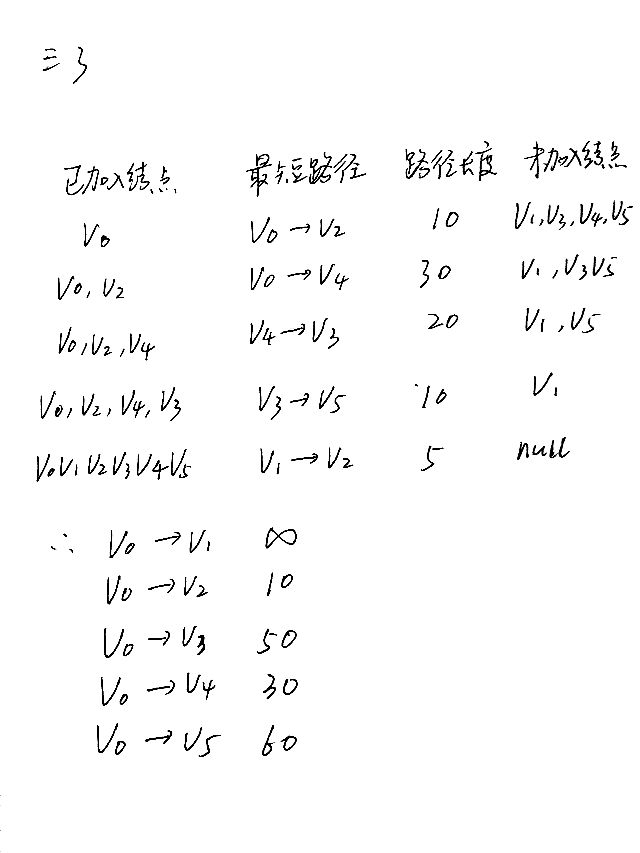 三 3
已加入结点 最短路径 路径长度 未加入结点
V0 V0→V2 10 V1,V3,V4,V5
V0,V2 V0→V4 30 V1,V3V5
V0,V2,V4 V4→V3 20 V1,V5
V0,V2,V4,V3 V3→V5 10 V1
V0V1V2V3V4V5 V1→V2 5 null
∴ V0→V1 ∞
V0→V2 10
V0→V3 50
V0→V4 30
V0→V5 60